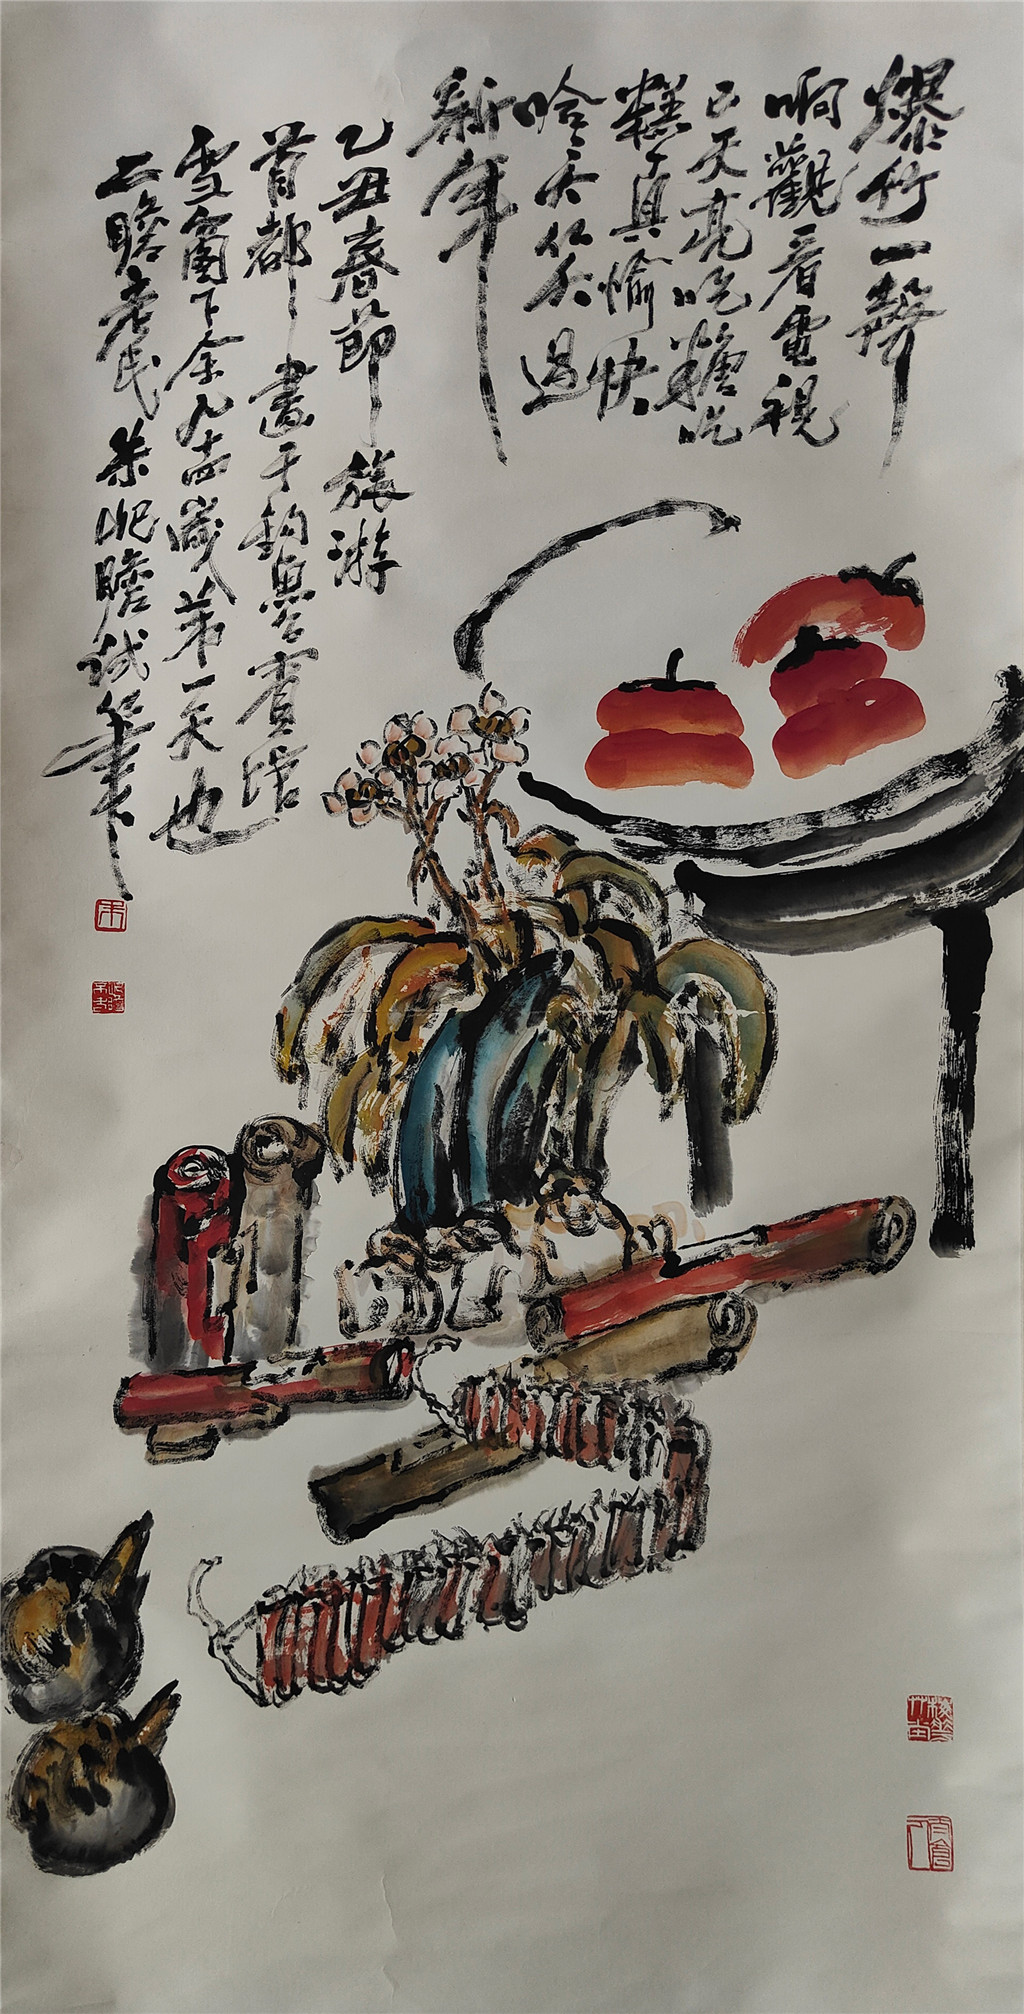 爆竹一聲
啊觀看電視
已天亮吃糖吃
糕真愉快
哈過
新年
乙丑春節旅游
首都畫于釣魚賓舘
雪窗下余九十四歲第一天也
二瞻老民朱屺瞻試筆
朱